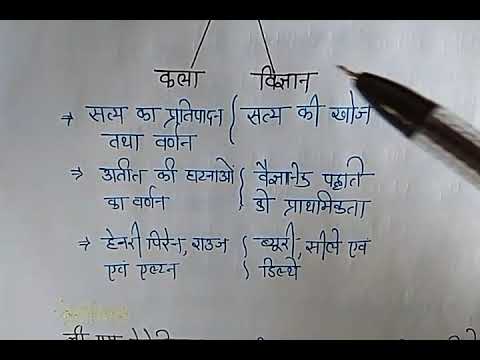 कला विज्ञान
→ सत्य का प्रतिपादन { सत्य की खोज
तथा वर्णन
→ अतीत की घटनाओं { वैज्ञानिक पद्धति
का वर्णन { को प्राथमिकता
→ हेनरी पिरेन, राउज { ब्यूरी, सीले एवं
एवं एल्टन { डिल्थे